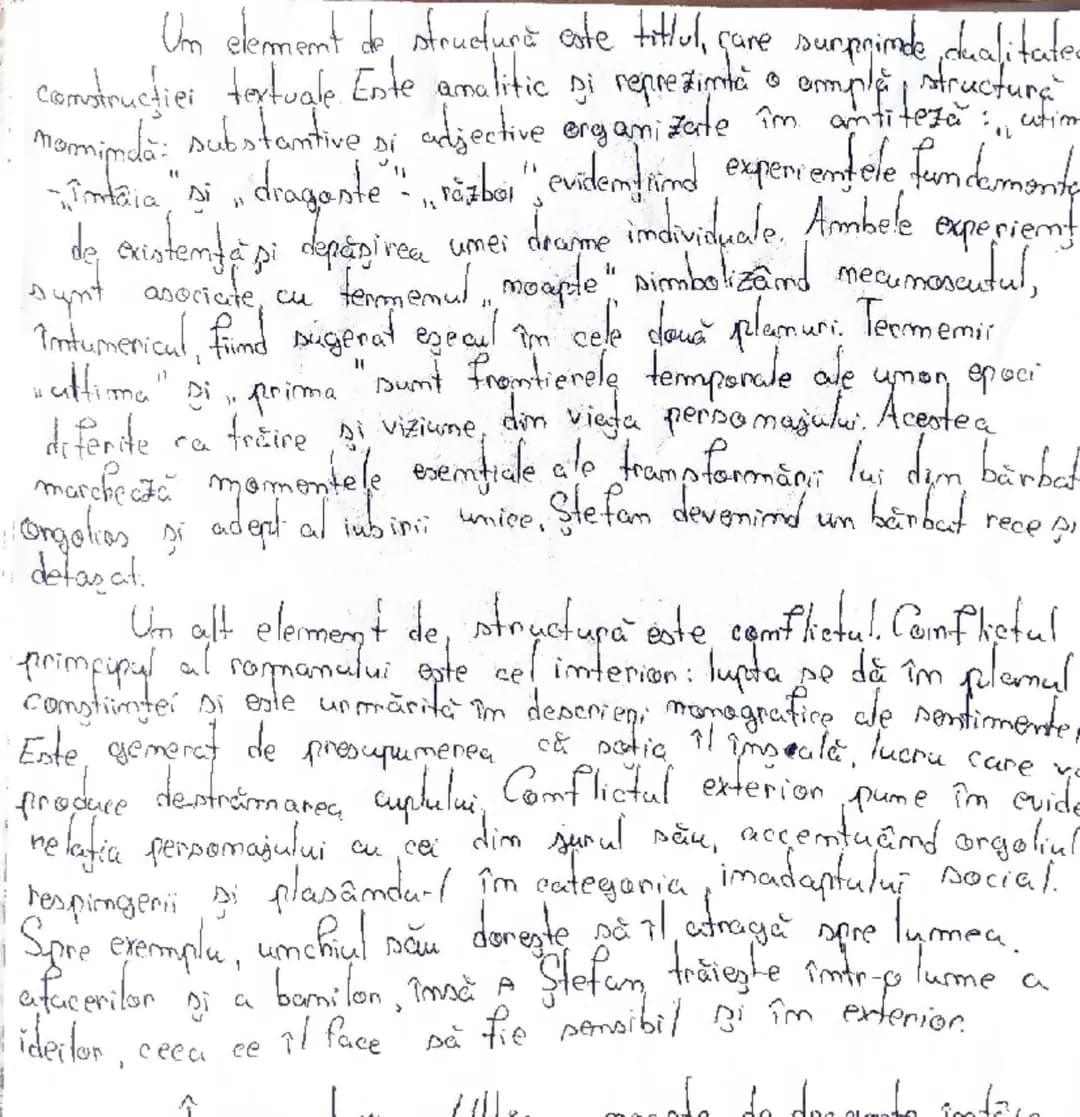 Un element de structură este titlul, care surprinde dualitatea
construcției textuale. Este analitic și reprezintă o amplă structură
nominală: substantive și adjective organizate în antiteză: „ultim
-„întâia" și „dragoste"-„război", evidențiind experiențele fundamenta
de existență și depășirea unei drame individuale. Ambele experienț
sunt asociate cu termenul „noapte" simbolizând necunoscutul,
întunericul, fiind sugerat eșecul în cele două planuri. Termenii
„ultima" și „prima" sunt frontierele temporale ale unor epoci
diferite ca trăire și viziune, din viața personajului. Acestea
marchează momentele esențiale ale transformării lui din bărbat
orgolios și adept al iubirii unice, Ștefan devenind un bărbat rece și
detașat.
Un alt element de structură este conflictul. Conflictul
principal al romanului este cel interior: lupta se dă în planul
conștiinței și este urmărită în descrieri monografice ale sentimente
Este generat de presupunerea că soția îl înșeală, lucru care v
produce destrămarea cuplului. Conflictul exterior pune în evide
relația personajului cu cei din jurul său, accentuând orgoliul
respingerii și plasându-l în categoria inadaptului social.
Spre exemplu, unchiul său dorește să îl atragă spre lumea
afacerilor și a banilor, însă Ștefan trăiește într-o lume a
ideilor, ceea ce îl face să fie sensibil și în exterior.